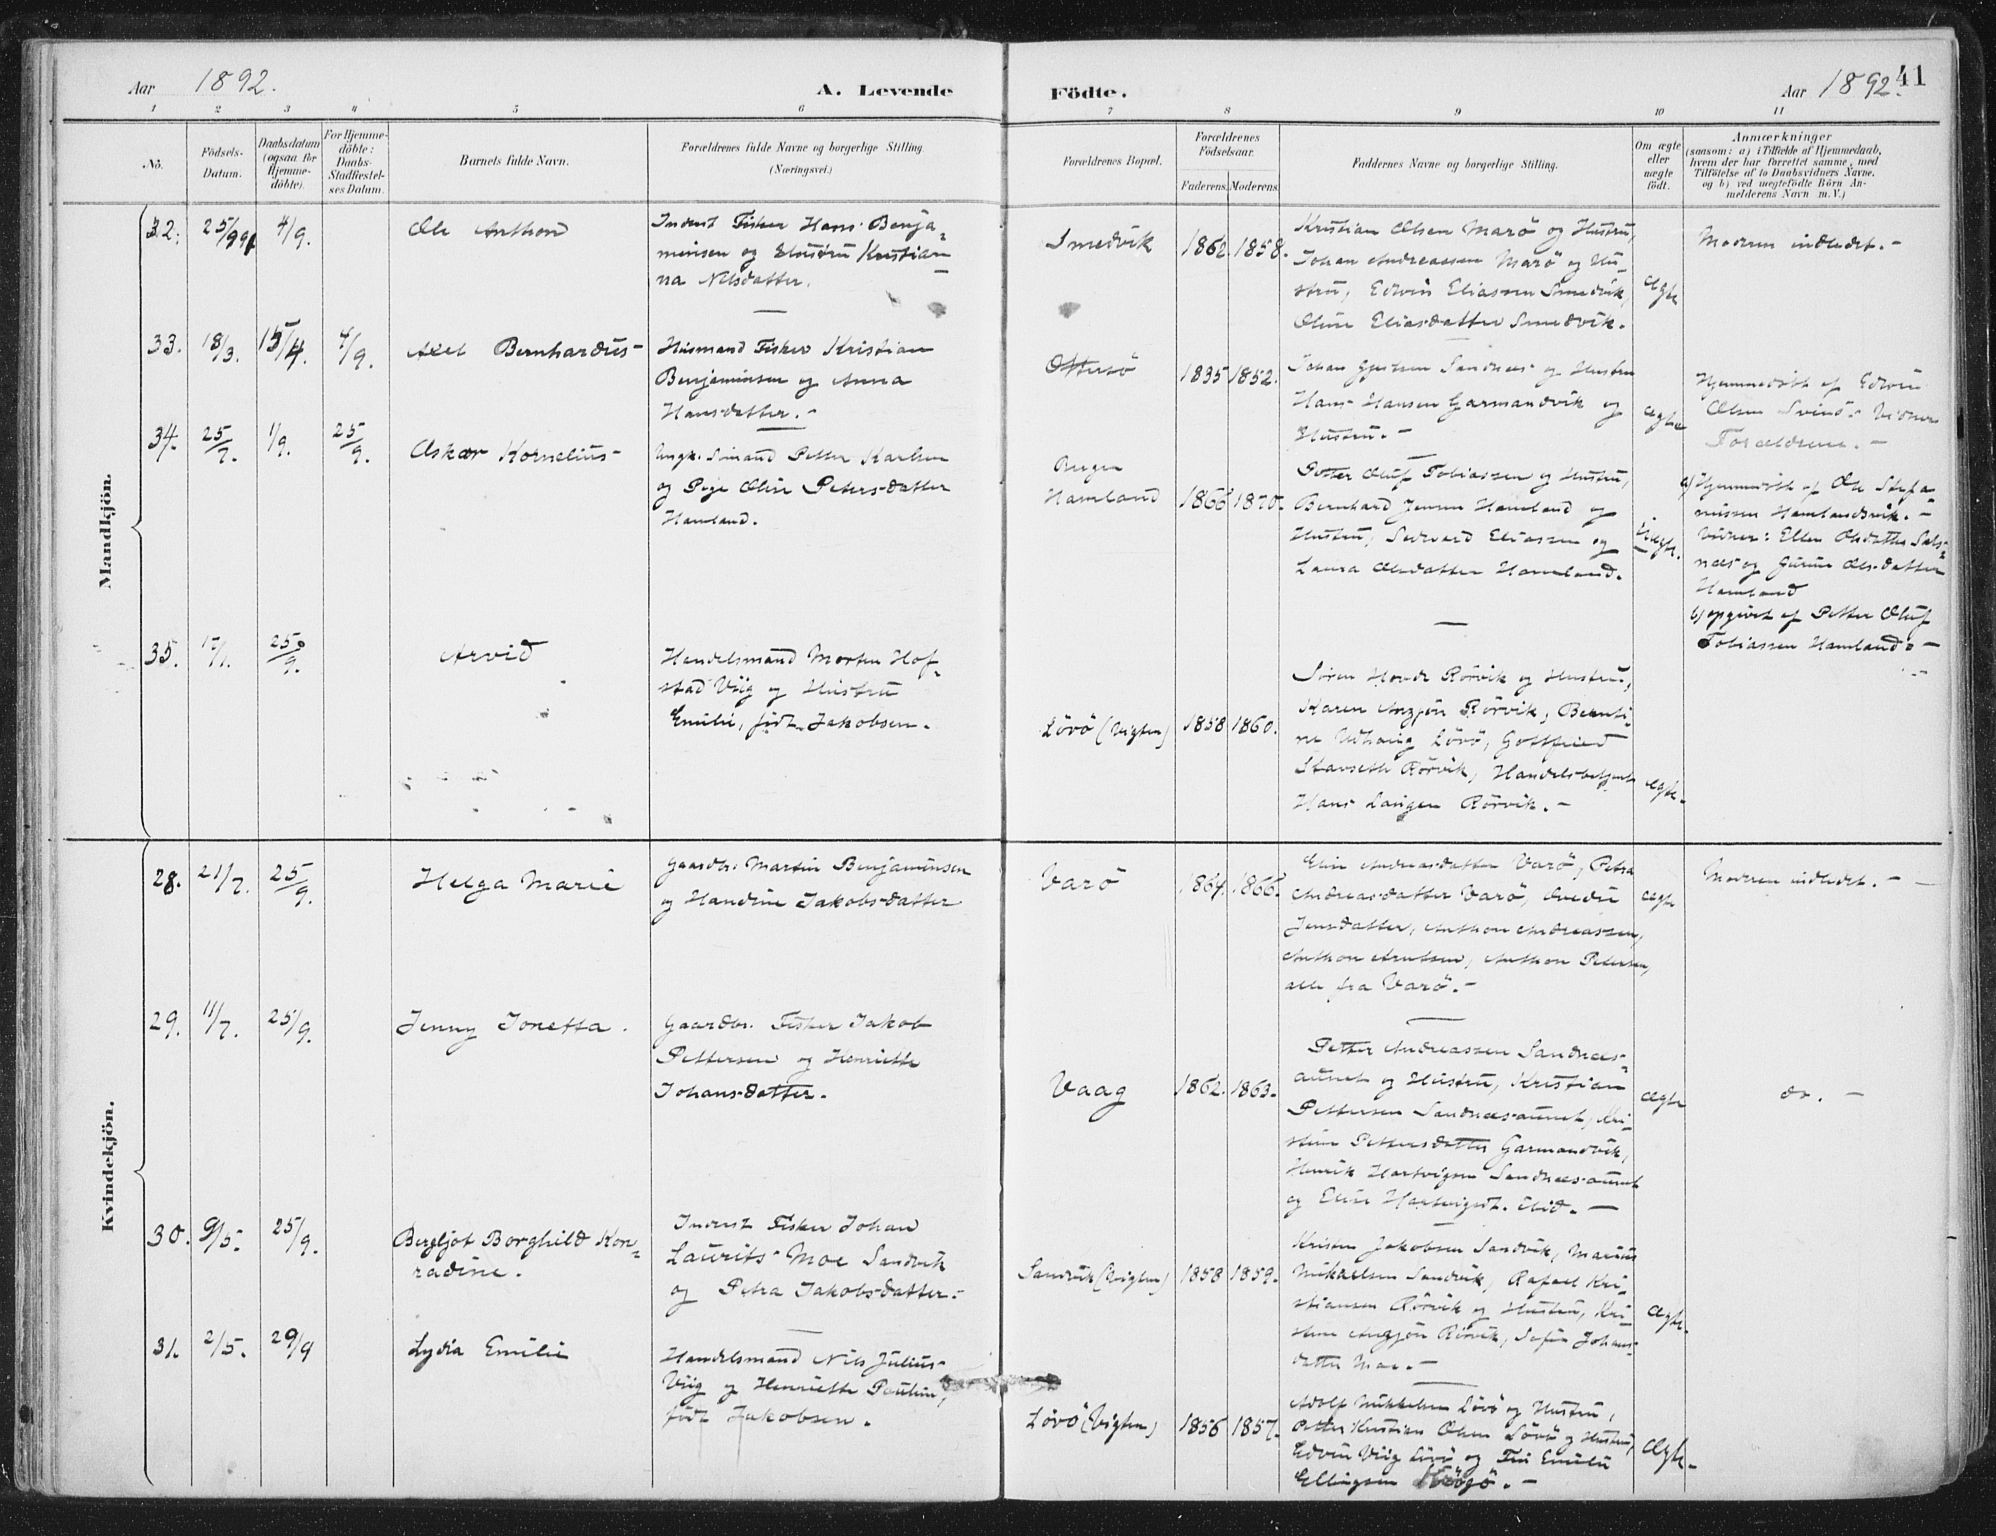 Aar 1892. A. Levende Födte. Aar 1892. 41
1 2 3 4 5 6 7 8 9 10 11
No.
Födsels-
Datum.
Daabsdatum
(ogsaa for
Hjemme-
döbte).
For Hjemme-
döbte:
Daabs-
Stadfæstel-
ses Datum.
Barnets fulde Navn.
Forældrenes fulde Navne og borgerlige Stilling
(Næringsvei.)
Forældrenes Bopæl.
Forældrenes
Födselsaar.
Faderens. Moderens.
Faddernes Navne og borgerlige Stilling.
Om ægte
eller
uægte
födt.
Anmærkninger
(saasom: a) i Tilfælde af Hjemmedaab,
hvem der har forrettet samme, med
Tilföielse af to Daabsvidners Navne,
og b) ved uægtefödte Börn An-
melderens Navn m. V.)
Mandkjön.
32. 4/9. Ole Anthon
Inderst Fisker Hans Benja-
minsen og Hustru Kristian-
na Nilsdatter.
Smedvik 1862. 1858.
Kristian Olsen Marö og Hustru,
Johan Andreassen Marö og Hu-
stru, Edvin Eliassen Smedvik,
Oline Eliasdatter Smedvik.
ægte
Moderen indledet. -
33. 18/3. 15/4. 4/9. Axel Bernhardus
Husmand Fisker Kristian
Benjaminsen og Anna
Hansdatter. -
Ottersö 1835 1852.
Johan Gjertsen Sandnes og Hustru
Hans Hansen Garmandvik og
Hustru. -
ægte
Hjemmedöbt af Edvin
Olsen Svinö. Vidner
Forældrene. -
34. 25/7. 1/9. 25/9. Oskar Kornelius
Ungk. Sömand Petter Karlsen
og Pige Oline Petersdatter
Hamland.
Hamland 1866 1870.
Petter Oluf Tobiassen og Hustru,
Bernhard Jensen Hamland og
Hustru, Sedvard Eliassen og
Laura Olsdatter Hamland.
uægte.
a) Hjemmedöbt af Ole Stefa-
nussen Hamlandsvik. -
Vidner: Ellen Olsdatter Sals-
næs og Gurine Olsdatter
Hamland
b) opgivet af Petter Oluf
Tobiassen Hamland. -
35. 17/1. 25/9. Arvid
Handelsmand Morten Hof-
stad Viig og Hustru
Emilie, född Jakobsen.
Lövö (Vigten) 1858 1860.
Sören Hovde Rörvik og Hustru,
Karen Anzjön Rörvik, Bernti-
ne Udhaug Lövö, Gottfried
Stavseth Rörvik, Handelsbetjent
Hans Laugen Rörvik. -
ægte.
Kvindekjön.
28. 21/7. 25/9. Helga Marie
Gaardbr. Martin Benjaminsen
og Handine Jakobsdatter
Varö 1864. 1866.
Eline Andreasdatter Varö, Petra
Andreasdatter Varö,
Jensdatter, Anthon Andreassen,
Anthon Arntsen, Anthon Petersen,
alle fra Varö. -
ægte
Moderen indledet. -
29. 11/7. 25/9. Jenny Jonetta.
Gaardbr. Fisker Jakob
Pettersen og Henriette
Johansdatter.
Vaag 1862. 1863.
Petter Andreassen Sandnes-
aunet og Hustru, Kristian
Pettersen Sandnesaunet, Kri-
stine Pettersdatter Garmandvik,
Henrik Hartvigsen Sandnesaunet
og Eline Hartvigsdt. ibid. -
ægte
do. -
30. 9/5. 25/9. Bergljot Borghild Kon-
radine.
Inderst Fisker Johan
Laurits Moe Sandvik
og Petra Jakobsdatter.
Sandvik (Vigten) 1858 1859.
Kristen Jakobsen Sandvik, Marius
Mikaelsen Sandvik, Rafael Kri-
stiansen Rörvik og Hustru, Kri-
stine Anzjön Rörvik, Sofie Johans-
datter Moe. -
ægte.
31. 2/5. 29/9 Lydia Emilie
Handelsmand Nils Julius
Viig og Henriette Pauline,
född Jakobsen.
Lövö (Vigten) 1856 1857.
Adolf Mikkelsen Lövö og Hustru,
Petter Kristian Olsen Lövö og Hustru,
Edvin Viig Lövö og Fin Emilie
Ellingsen
ægte.